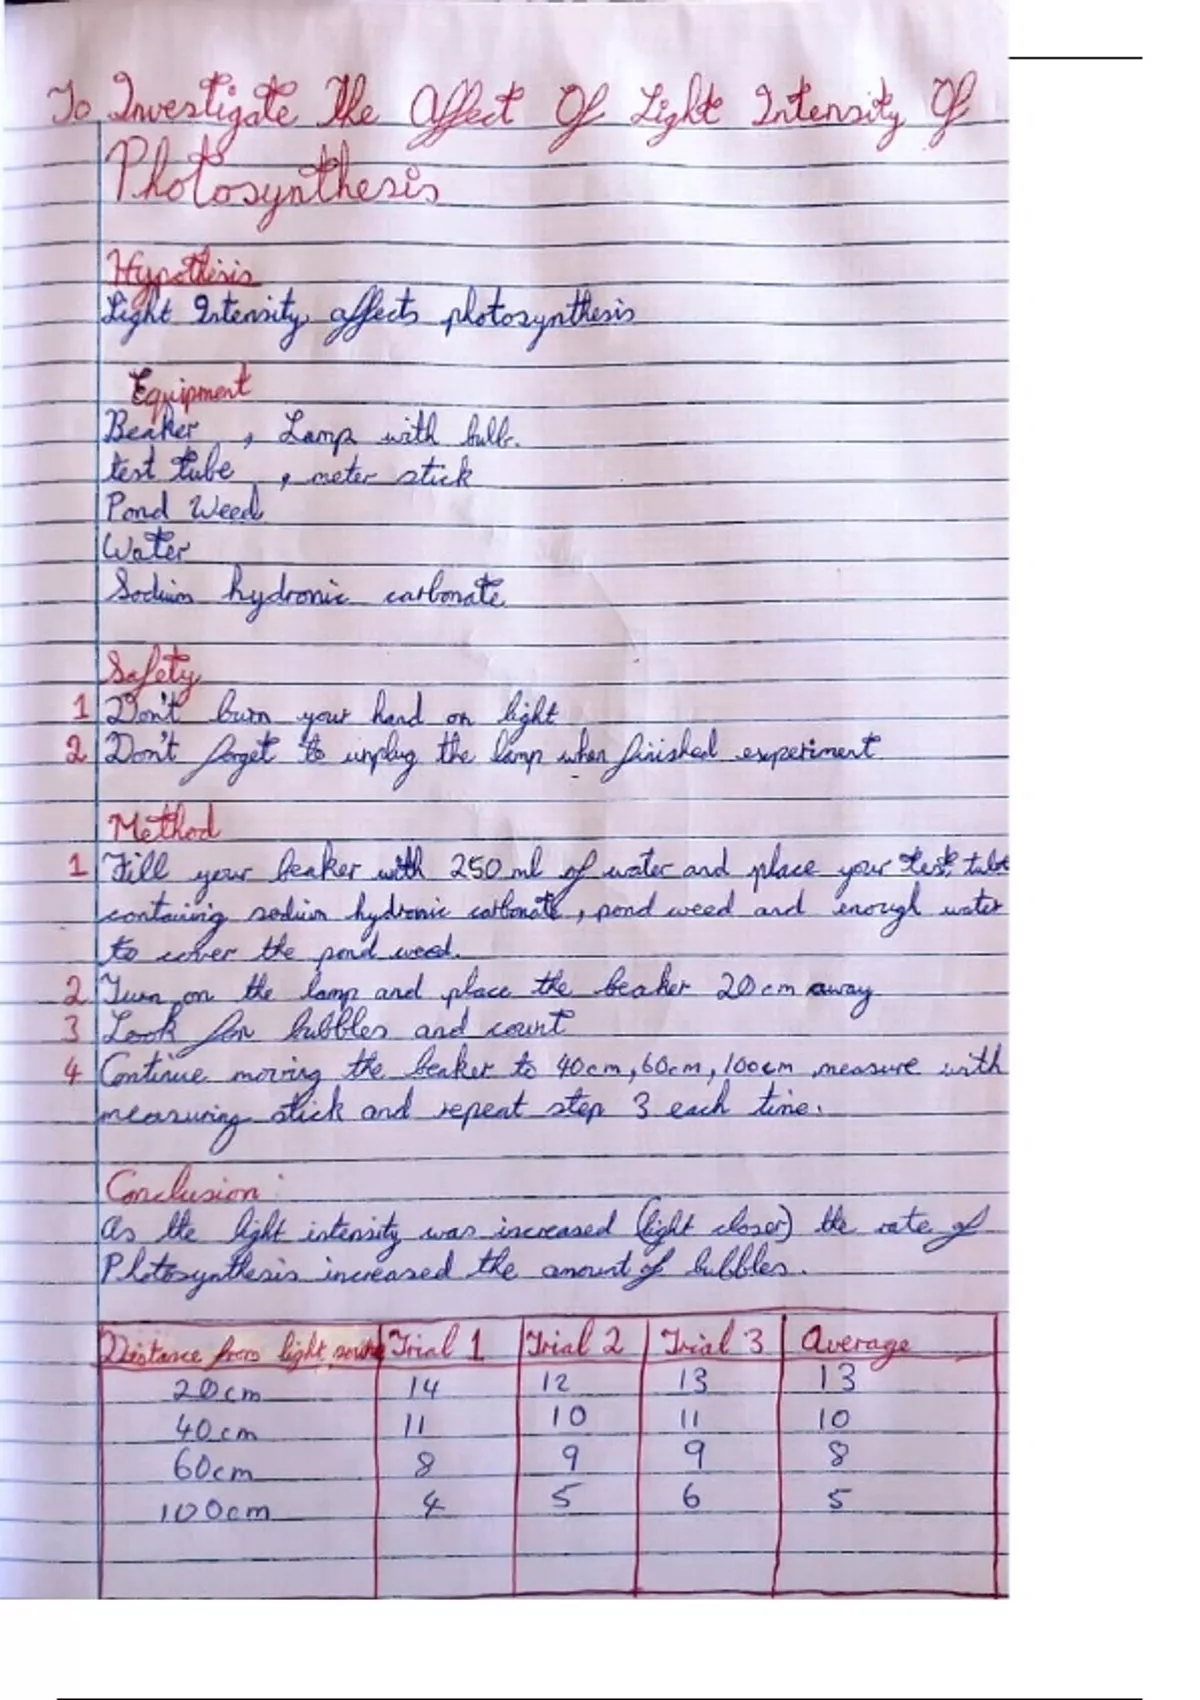 To Investigate The Affect Of Light Intensity Of
Photosynthesis
Hypothisis
Light Intensity affects photosynthesis
Equipment
Beaker , Lamp with bulb.
test tube , meter stick
Pond Weed
Water
Sodium hydronic carbonate
Safety
1 Don't burn your hand on light
2 Don't forget to unplug the lamp when finished experiment
Method
1 Fill your beaker with 250 ml of water and place your test tube
containing sodium hydronic carbonate, pond weed and enough water
to cover the pond weed.
2 Turn on the lamp and place the beaker 20cm away
3 Look for bubbles and count
4 Continue moving the beaker to 40cm, 60cm, 100cm measure with
measuring stick and repeat step 3 each time.
Conclusion :
As the light intensity was increased (light closer) the rate of
Photosynthesis increased the amount of bubbles.
Distance from light source Trial 1 Trial 2 Trial 3 Average
20cm 14 12 13 13
40cm 11 10 11 10
60cm 8 9 9 8
100cm 4 5 6 5